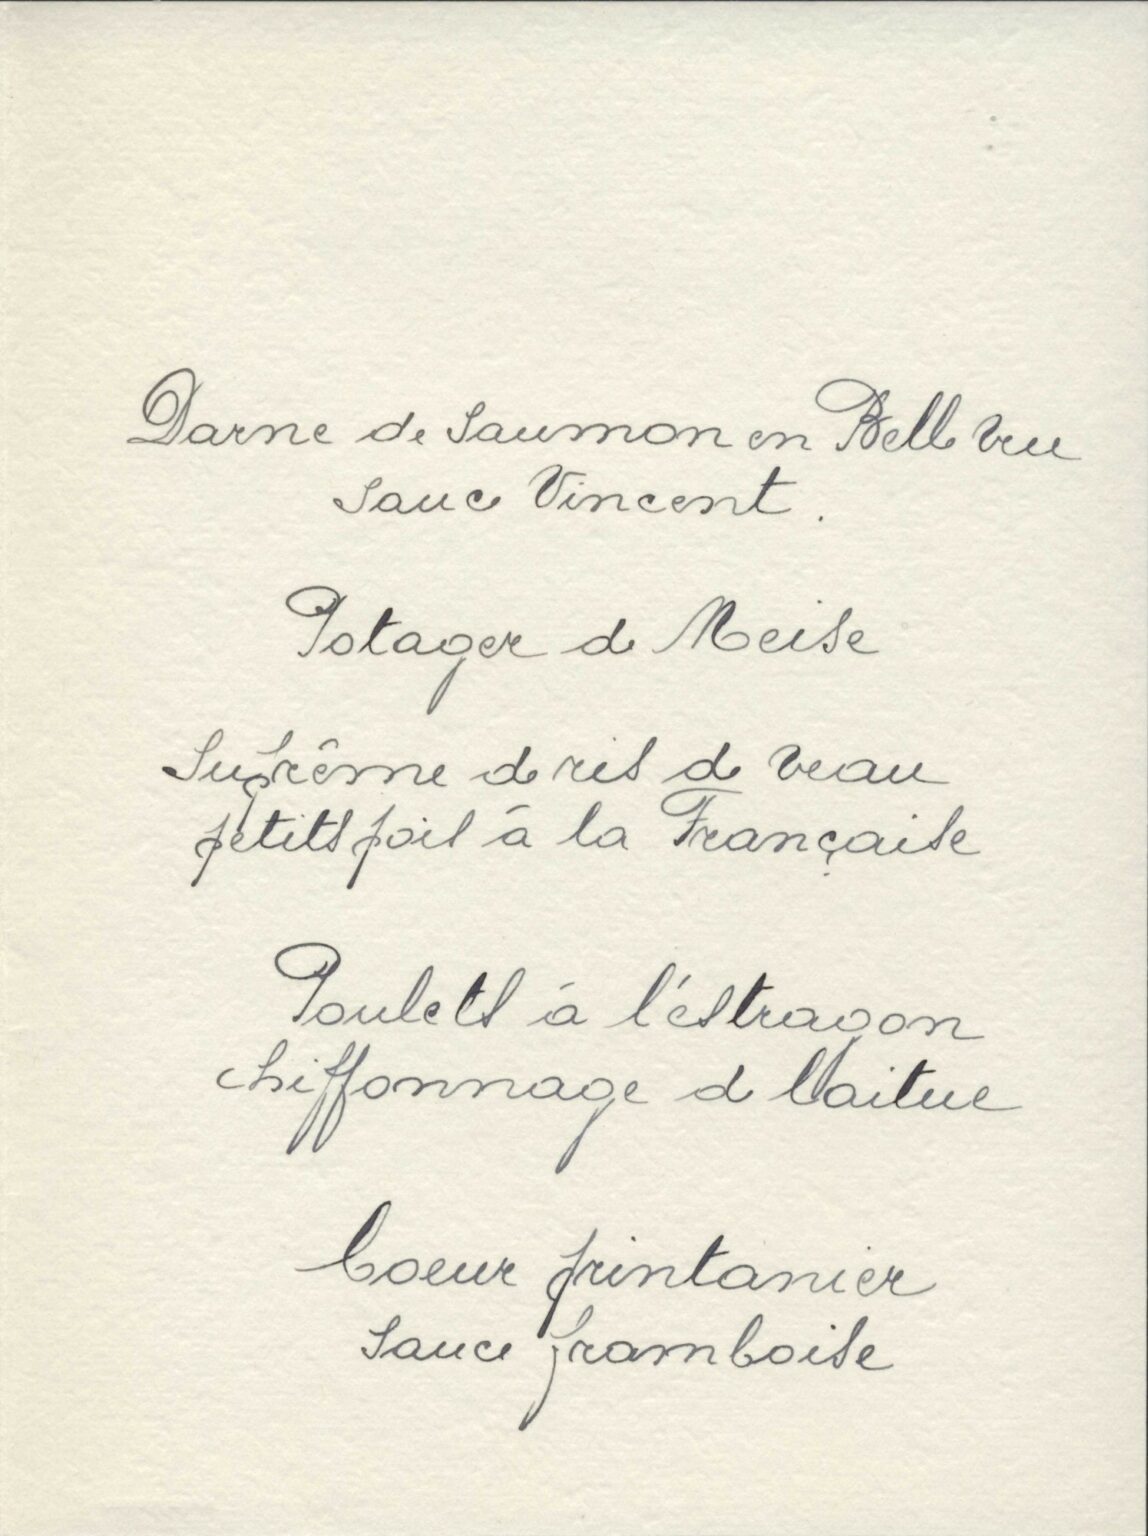 Darne de Saumon en Belle Vue
sauce Vincent.
Potager de Meise
Suprême de ris de veau
petits pois à la Française
Poulets à l'estragon
chiffonnage de laitue
Coeur printanier
sauce framboise